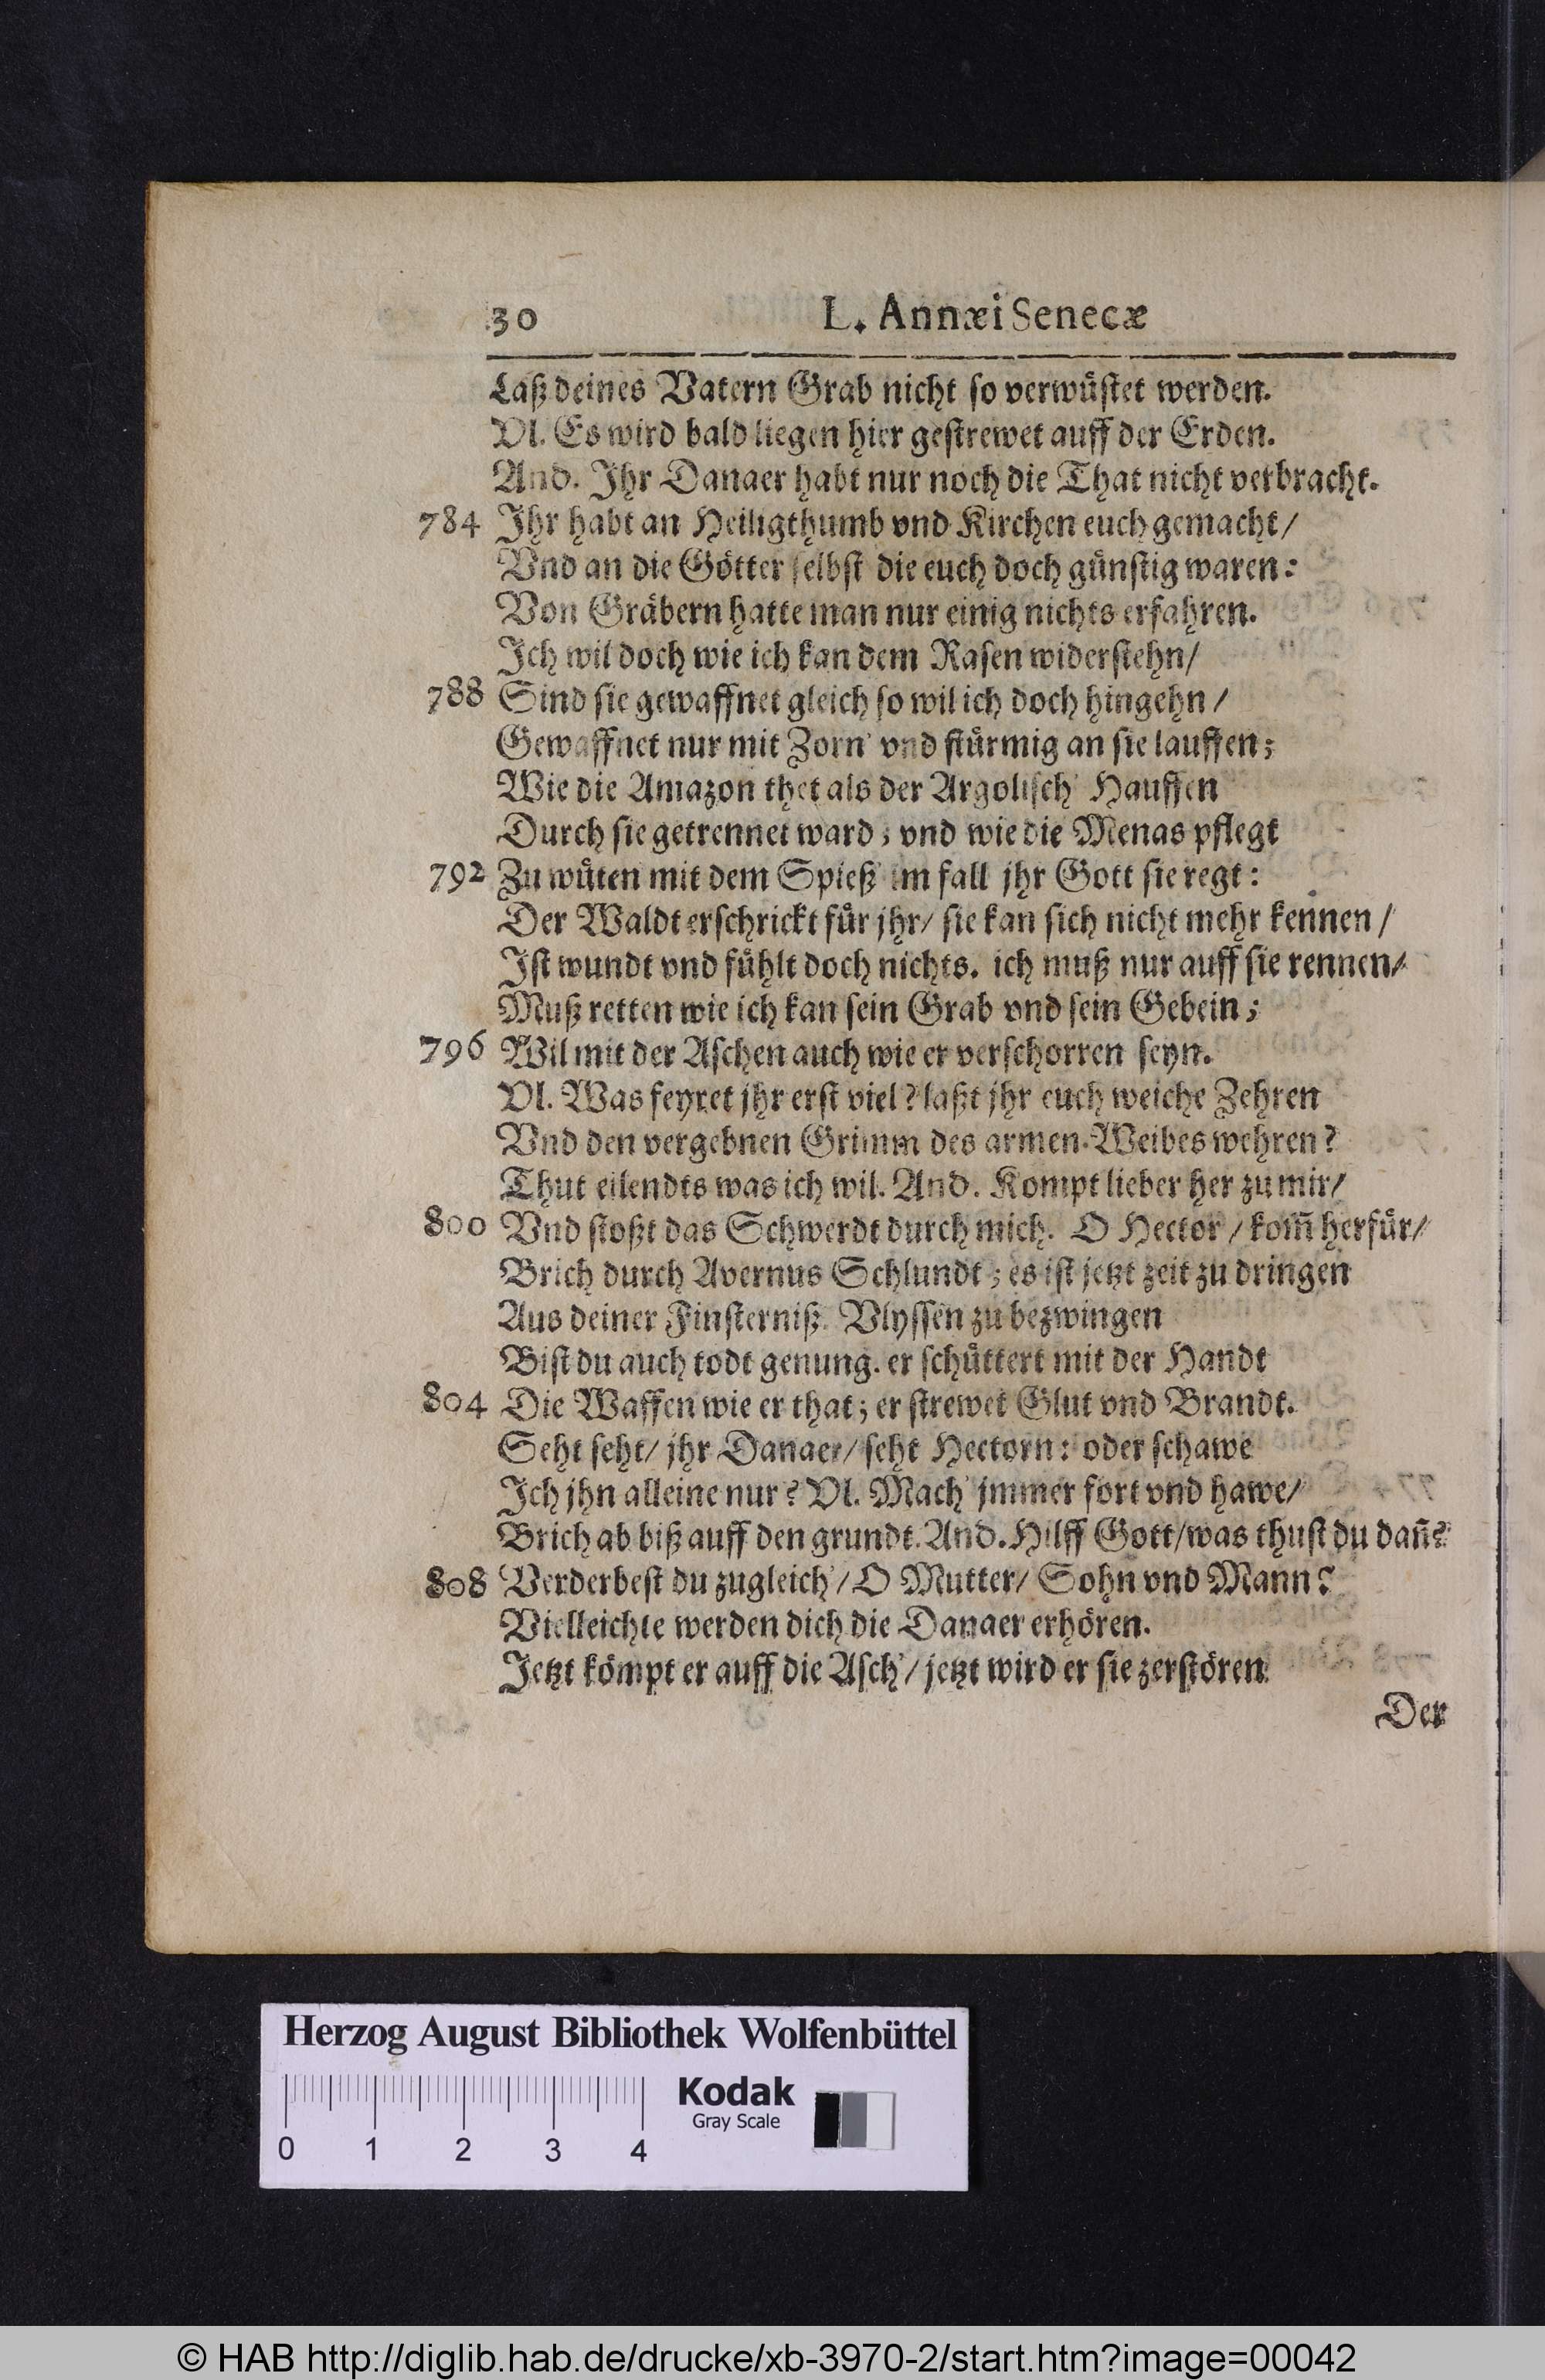 30 L. Annæi Senecæ
Laß deines Vatern Grab nicht so verwuͤstet werden.
Vl. Es wird bald liegen hier gestrewet auff der Erden.
And. Ihr Danaer habt nur noch die That nicht verbracht.
784 Ihr habt an Heiligthumb vnd Kirchen euch gemacht/
Vnd an die Goͤtter selbst die euch doch guͤnstig waren:
Von Graͤbern hatte man nur einig nichts erfahren.
Ich wil doch wie ich kan dem Rasen widerstehn/
788 Sind sie gewaffnet gleich so wil ich doch hingehn/
Gewaffnet nur mit Zorn' vnd stuͤrmig an sie lauffen;
Wie die Amazon thet als der Argolisch' Hauffen
Durch sie getrennet ward; vnd wie die Menas pflegt
792 Zu wuͤten mit dem Spieß' im fall jhr Gott sie regt:
Der Waldt erschrickt fuͤr jhr/ sie kan sich nicht mehr kennen/
Ist wundt vnd fuͤhlt doch nichts. ich muß nur auff sie rennen/
Muß retten wie ich kan sein Grab vnd sein Gebein;
796 Wil mit der Aschen auch wie er verschorren seyn.
Vl. Was feyret jhr erst viel? laßt jhr euch weiche Zehren
Vnd den vergebnen Grimm des armen Weibes wehren?
Thut eilendts was ich wil. And. Kompt lieber her zu mir/
800 Vnd stoßt das Schwerdt durch mich. O Hector/ kom̃ herfuͤr/
Brich durch Avernus Schlundt; es ist jetzt zeit zu dringen
Aus deiner Finsterniß. Vlyssen zu bezwingen
Bist du auch todt genung. er schuͤttert mit der Handt
804 Die Waffen wie er that; er strewet Glut vnd Brandt.
Seht seht/ jhr Danaer/ seht Hectorn: oder schawe
Ich jhn alleine nur? Vl. Mach' jmmer fort vnd hawe/
Brich ab biß auff den grundt. And. Hilff Gott/ was thust du dañ?
808 Verderbest du zugleich'/ O Mutter/ Sohn vnd Mann?
Vielleichte werden dich die Danaer erhoͤren.
Jetzt koͤmpt er auff die Asch'/ jetzt wird er sie zerstoͤren.
Der
Herzog August Bibliothek Wolfenbüttel
Kodak
Gray Scale
0 1 2 3 4
© HAB http://diglib.hab.de/drucke/xb-3970-2/start.htm?image=00042